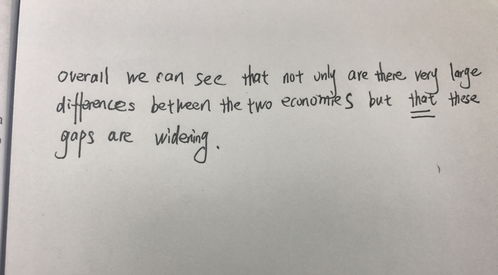 overall we can see that not only are there very large
differences between the two economies but that these
gaps are widening.